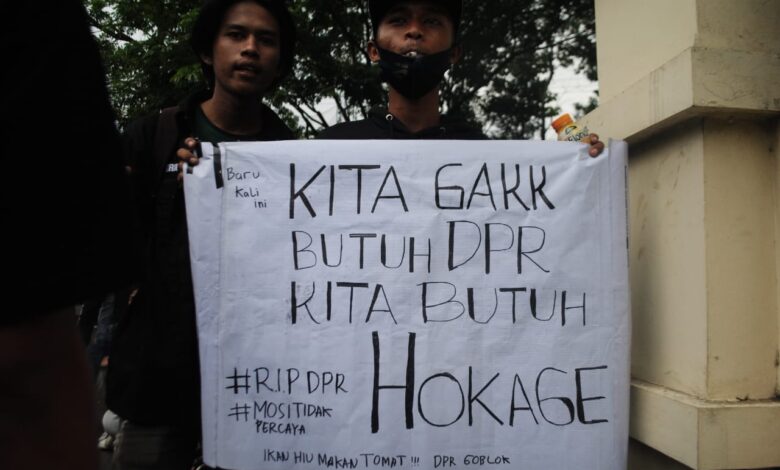 Baru
kali
ini
KITA GAKK
BUTUH DPR
KITA BUTUH
HOKAGE
#R.I.P DPR
#MOSITIDAK
PERCAYA
IKAN HIU MAKAN TOMAT !!! DPR GOBLOK